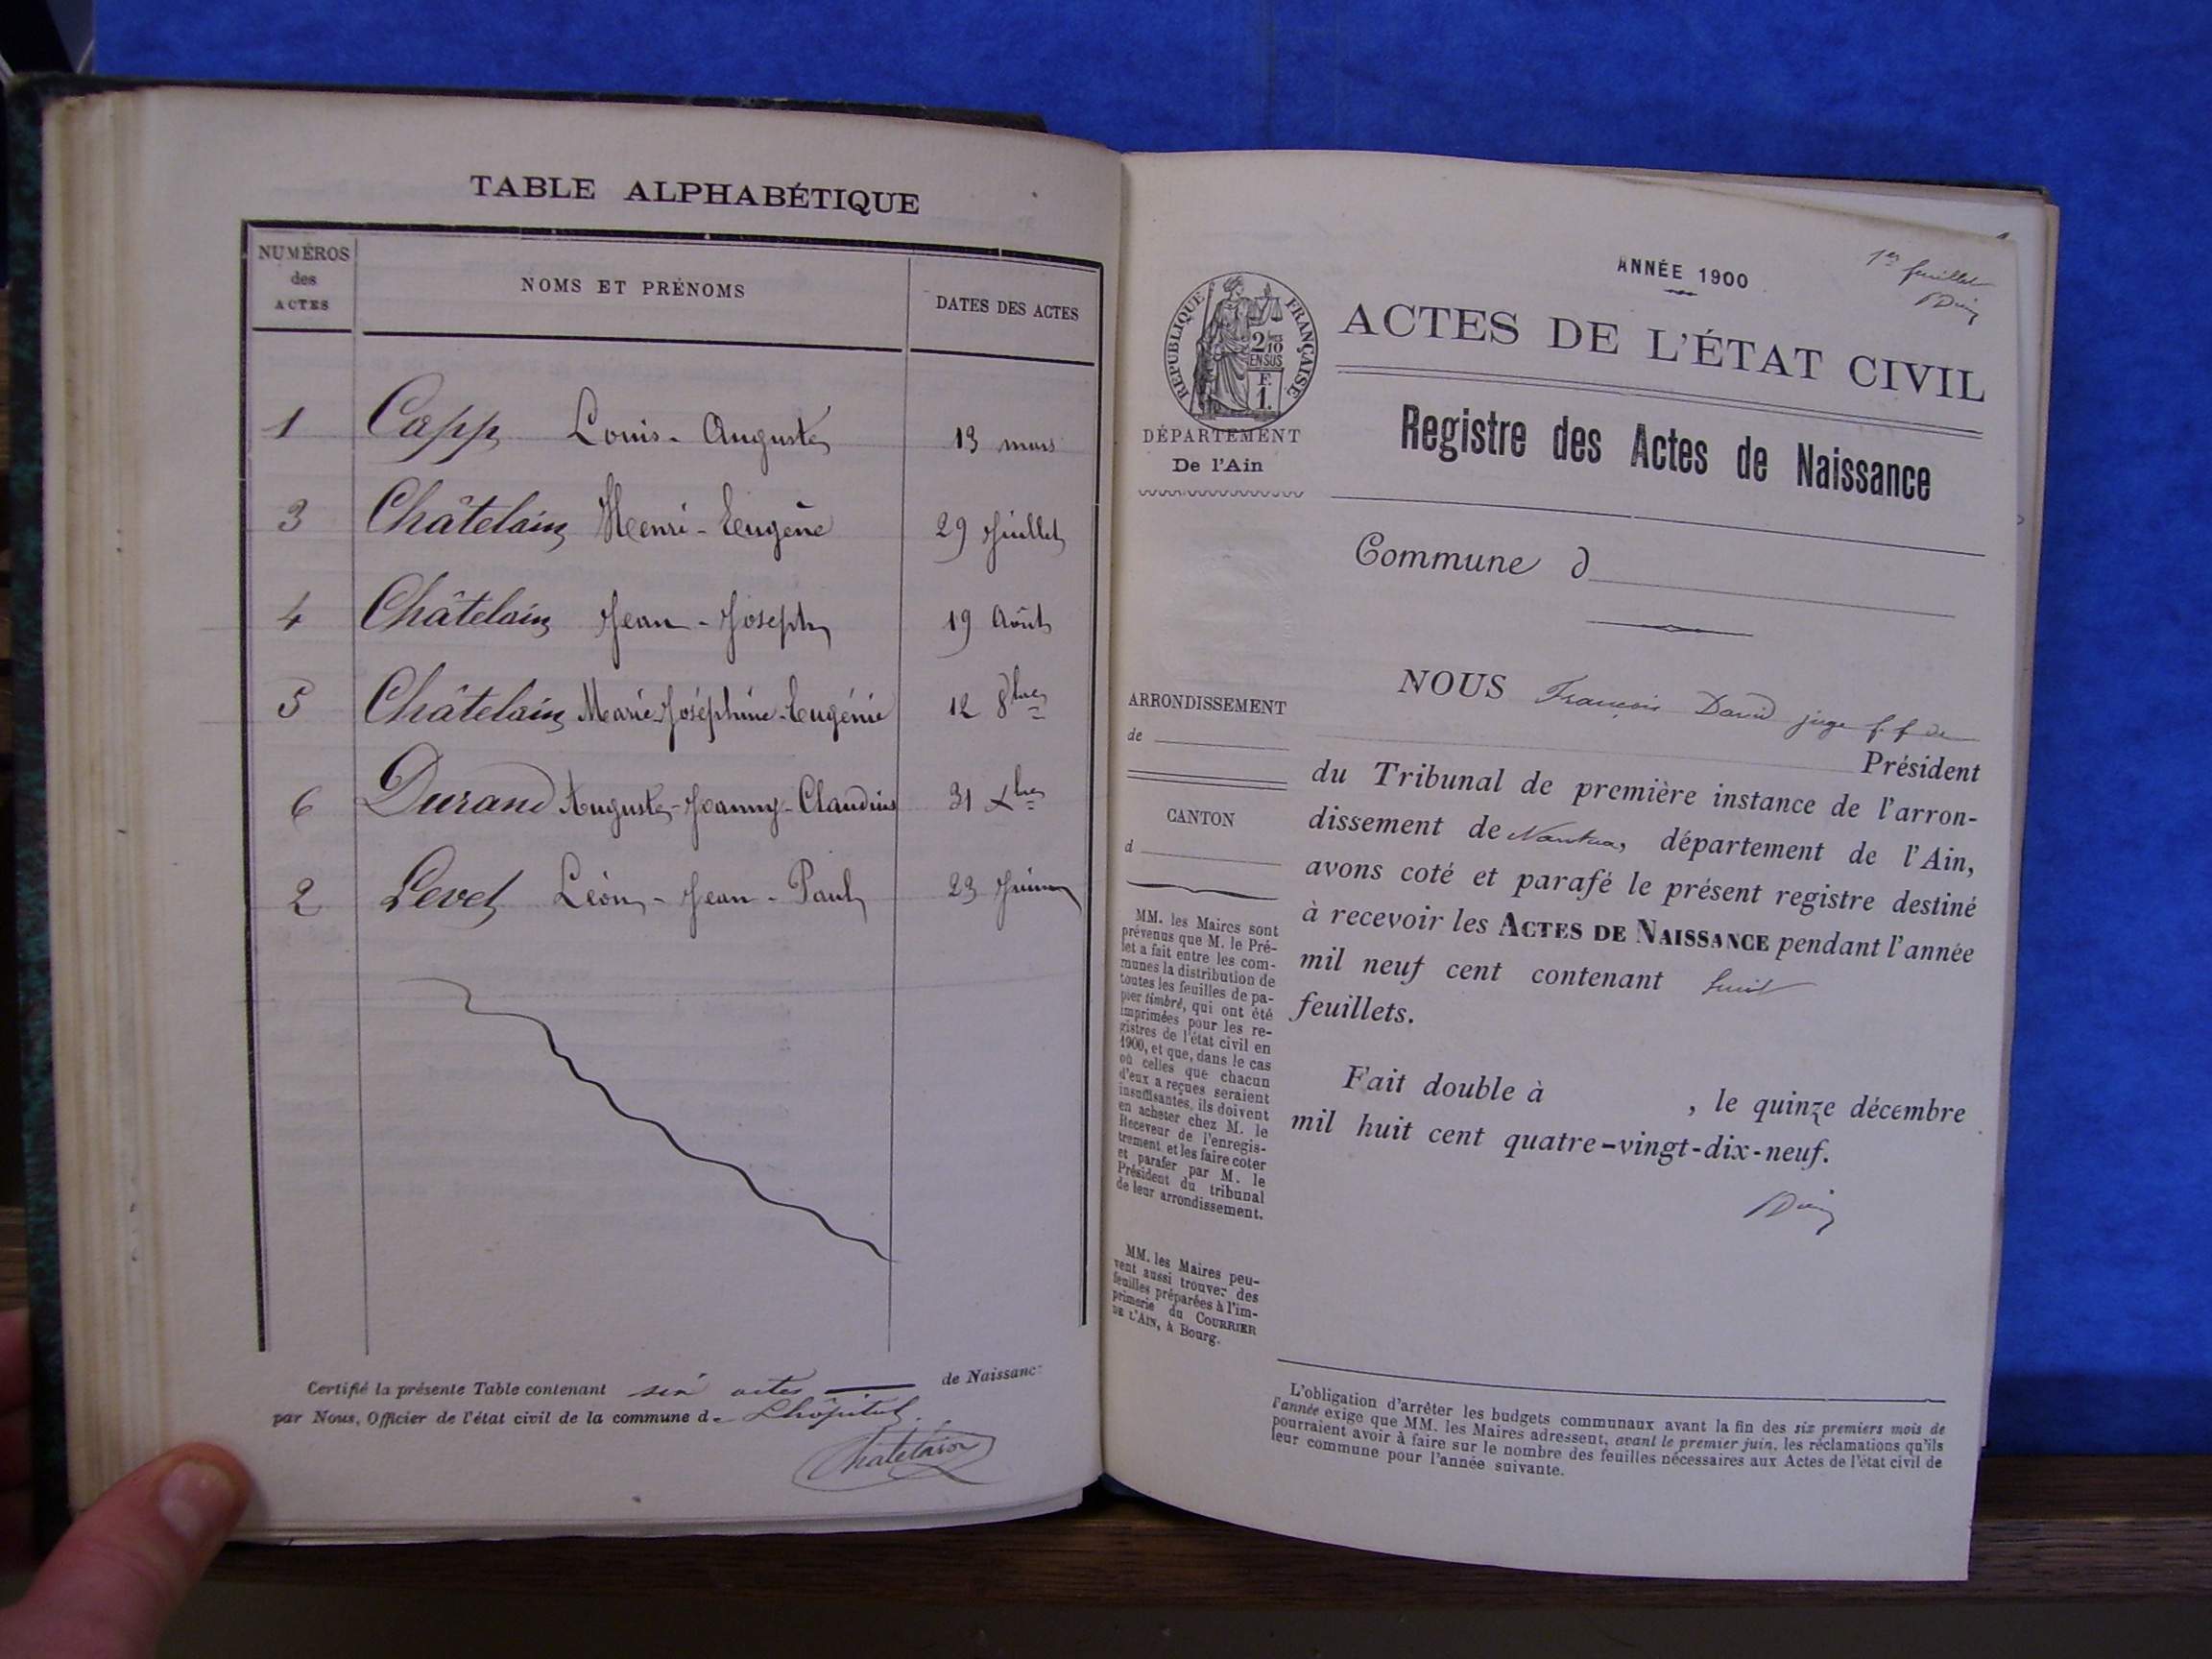 TABLE ALPHABÉTIQUE
NUMÉROS
des
ACTES
NOMS ET PRÉNOMS
DATES DES ACTES
1 Capp Louis-Auguste 13 mars
3 Châtelain Henri-Eugène 29 Juillet
4 Châtelain Jean-Joseph 19 Août
5 Châtelain Marie-Joséphine-Eugénie 12 8bre
6 Durand Auguste-Joanny-Claudius 31 Xbre
2 Levet Léon-Jean-Paul 23 Juin
Certifié la présente Table contenant six actes de Naissance
par Nous, Officier de l'état civil de la commune de Lhôpital.
Chatelain
1er feuillet
ANNÉE 1900
ACTES DE L'ÉTAT CIVIL
Registre des Actes de Naissance
RÉPUBLIQUE FRANÇAISE
2 10
EN SUS
F.
1.
DÉPARTEMENT
De l'Ain
Commune d
ARRONDISSEMENT
de
CANTON
d
MM. les Maires sont
prévenus que M. le Pré-
fet a fait entre les com-
munes la distribution de
toutes les feuilles de pa-
pier timbré, qui ont été
imprimées pour les re-
gistres de l'état civil en
1900, et que, dans le cas
où celles que chacun
d'eux a reçues seraient
insuffisantes, ils doivent
en acheter chez M. le
Receveur de l'enregis-
trement et les faire coter
et parafer par M. le
Président du tribunal
de leur arrondissement.
MM. les Maires peu-
vent aussi trouver des
feuilles préparées à l'im-
primerie du COURRIER
DE L'AIN, à Bourg.
NOUS François David juge f. f. de
Président
du Tribunal de première instance de l'arron-
dissement de Nantua, département de l'Ain,
avons coté et parafé le présent registre destiné
à recevoir les ACTES DE NAISSANCE pendant l'année
mil neuf cent contenant huit
feuillets.
Fait double à , le quinze décembre
mil huit cent quatre-vingt-dix-neuf.
L'obligation d'arrêter les budgets communaux avant la fin des six premiers mois de
l'année exige que MM. les Maires adressent, avant le premier juin, les réclamations qu'ils
pourraient avoir à faire sur le nombre des feuilles nécessaires aux Actes de l'état civil de
leur commune pour l'année suivante.